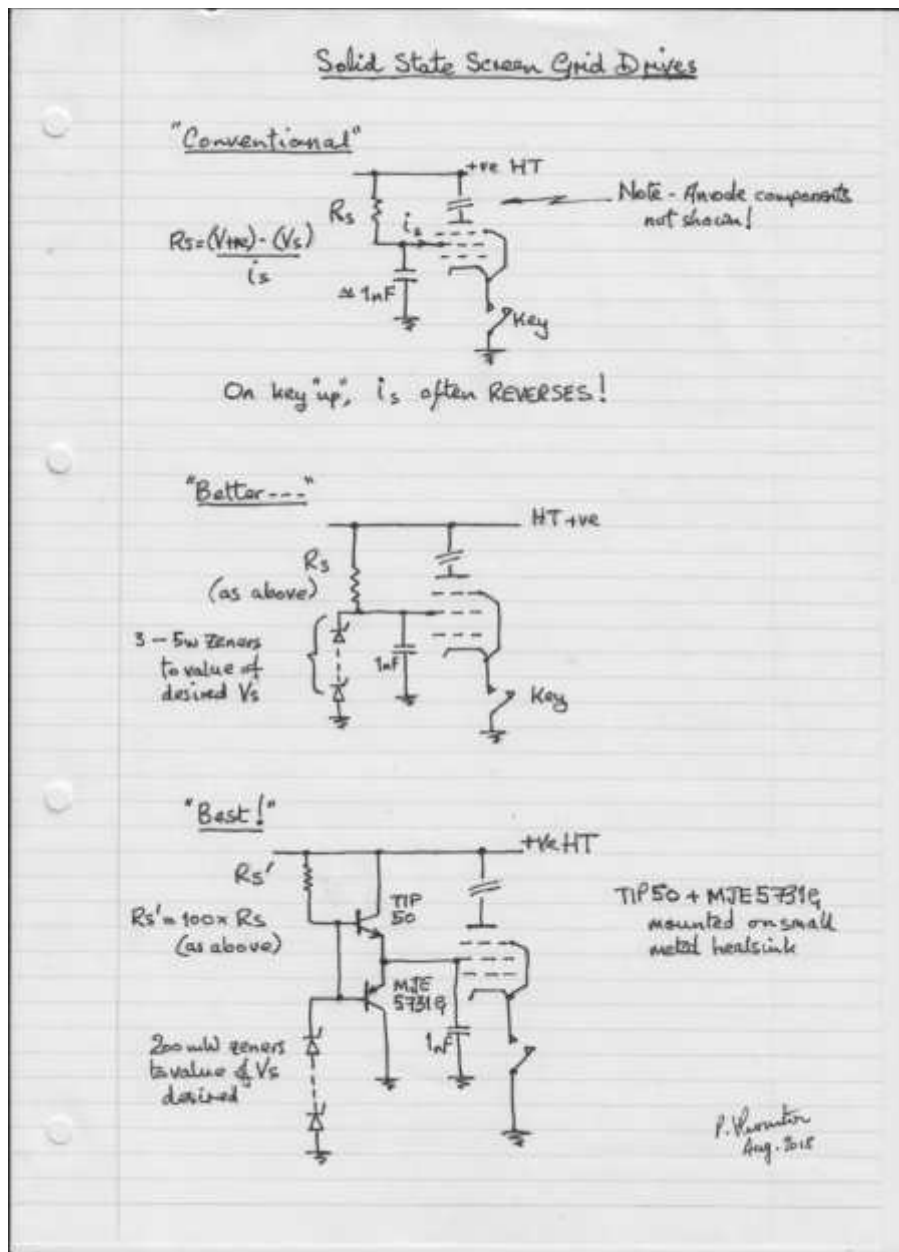 Solid State Screen Grid Drives
"Conventional"
+ve HT
Rs
is
Note - Anode components
not shown!
Rs = (V+ve) - (Vs)
is
≃ 1nF
Key
On key "up", is often REVERSES!
"Better---"
HT +ve
Rs
(as above)
3 - 5w zeners
to value of
desired Vs
1nF
Key
"Best!"
+ve HT
Rs'
TIP
50
Rs' = 100 x Rs
(as above)
TIP50 + MJE5731G
mounted on small
metal heatsink
MJE
5731G
1nF
200mW zeners
to value of Vs
desired
P.
Aug. 2018